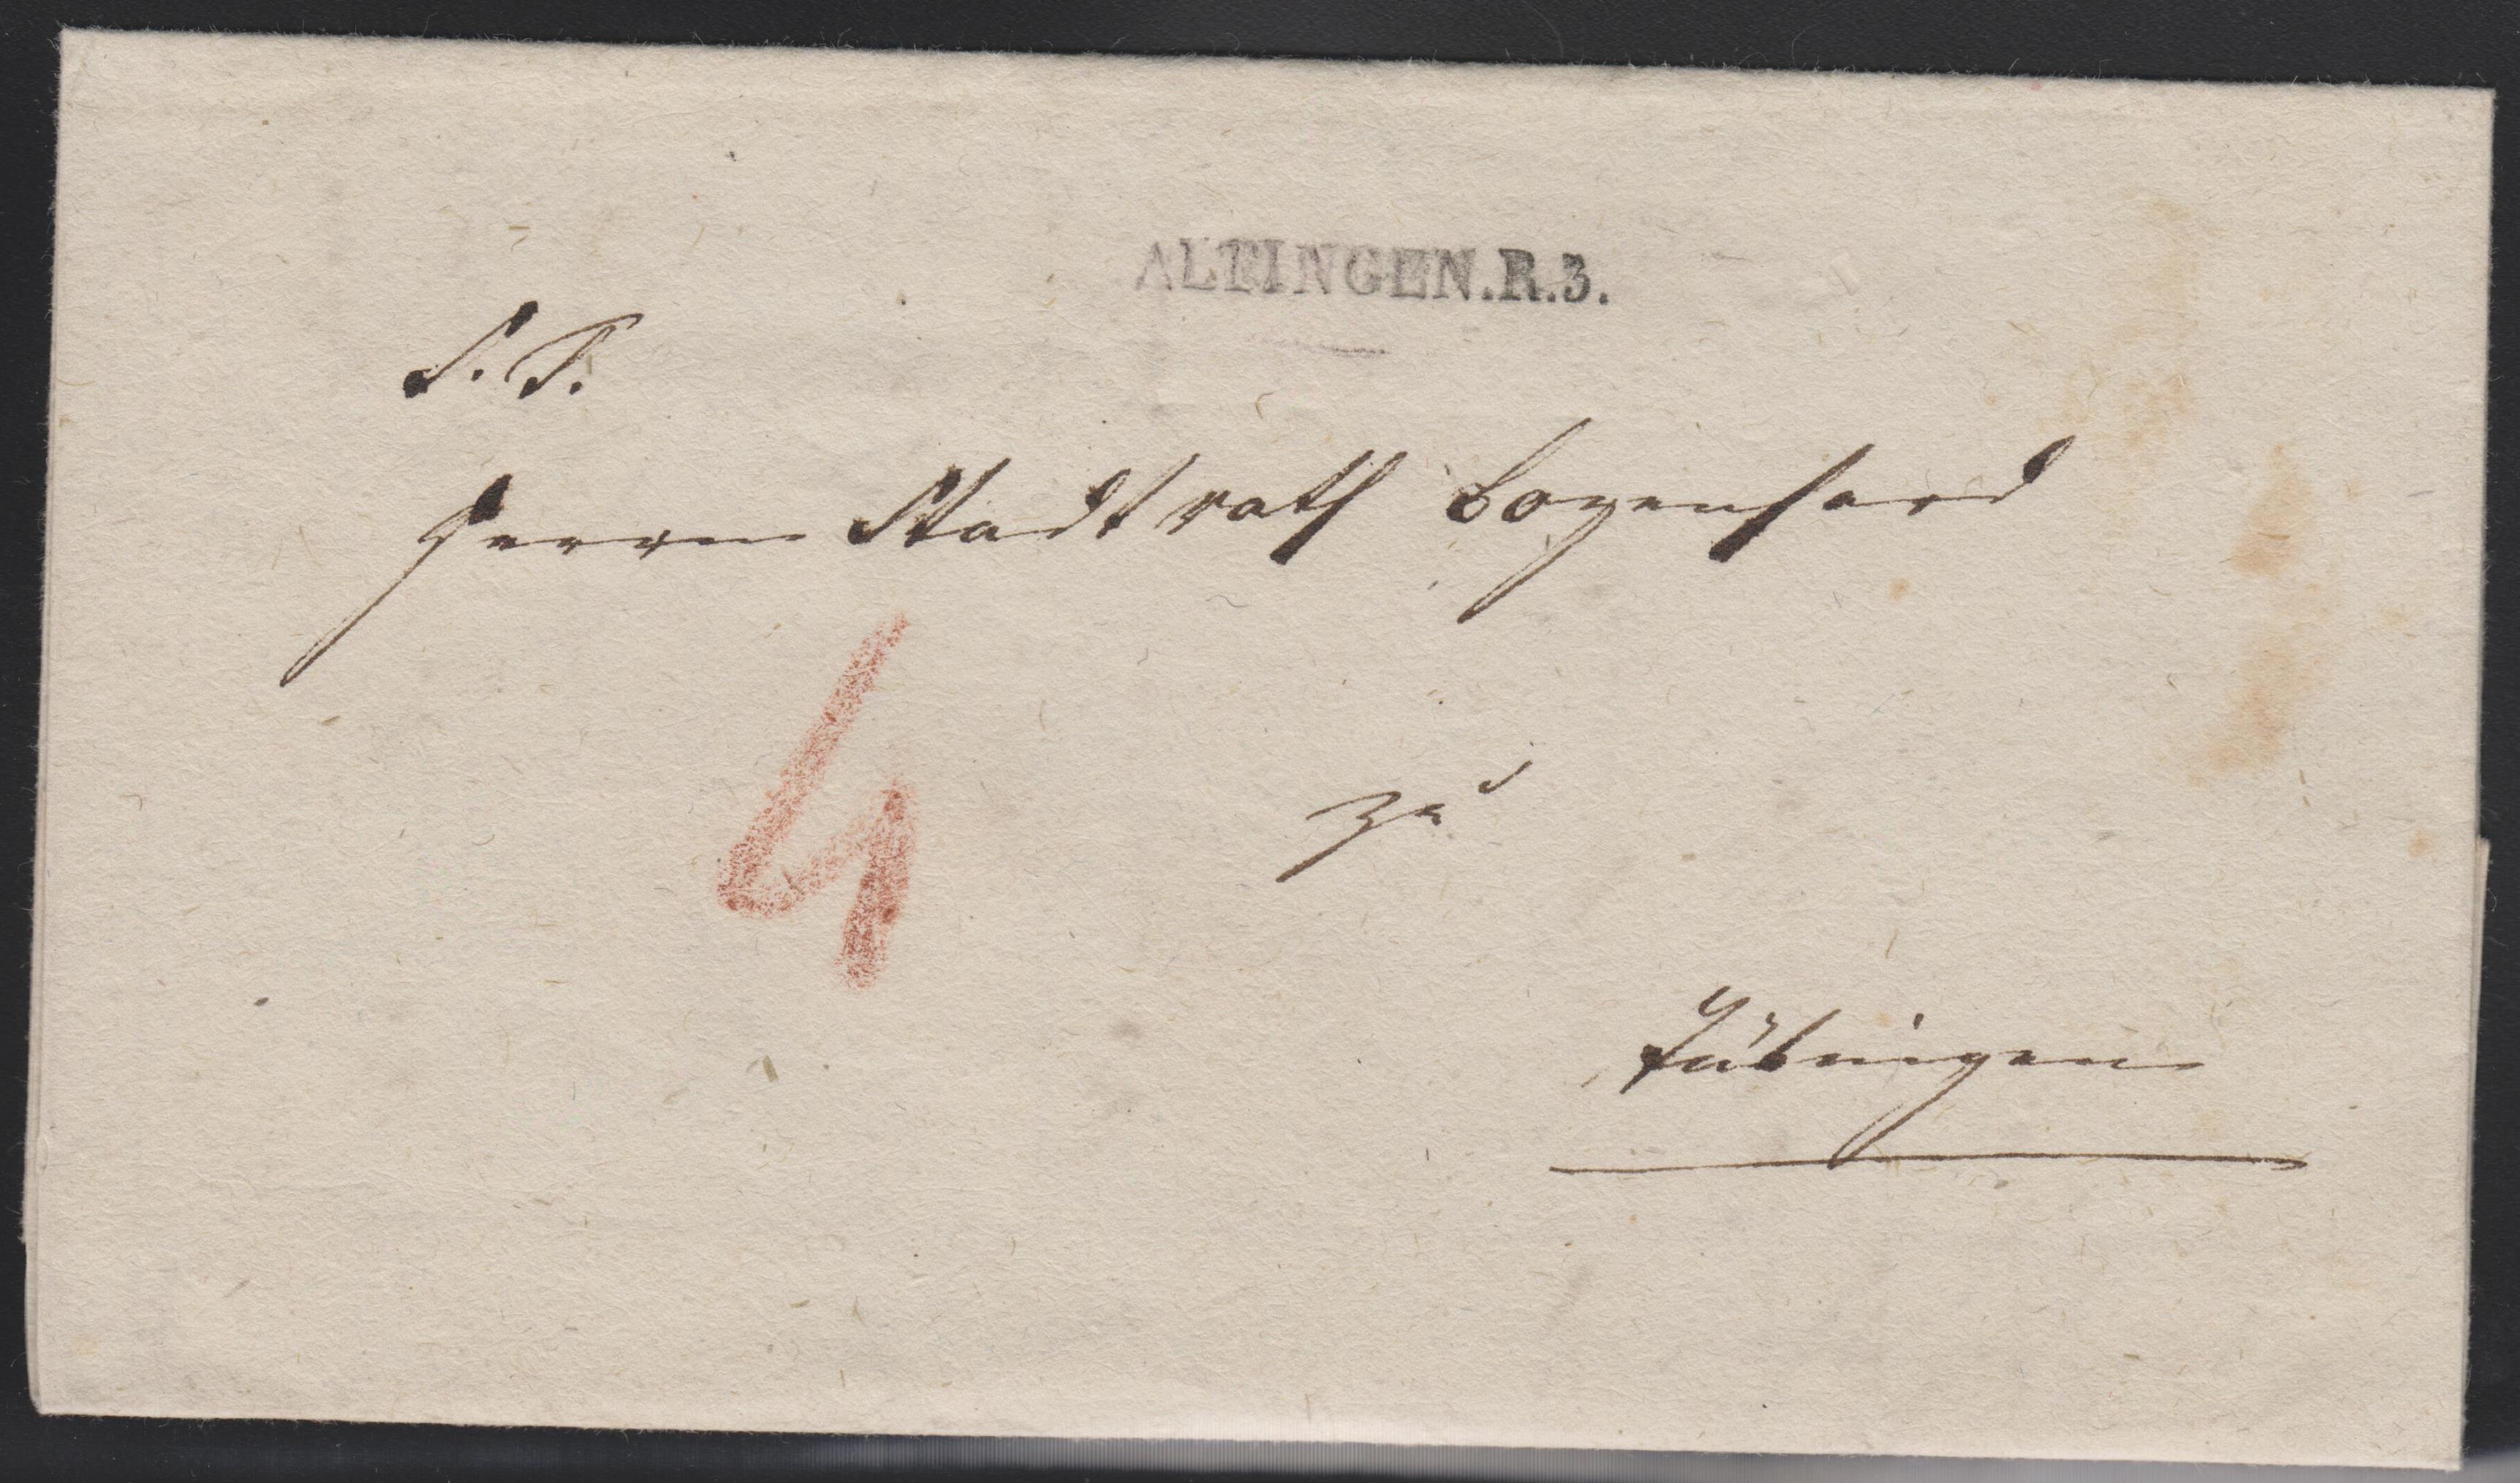 ALTINGEN.R.3.
S. T.
Herrn Stadtrath Bozenhard
4
zu
Tübingen